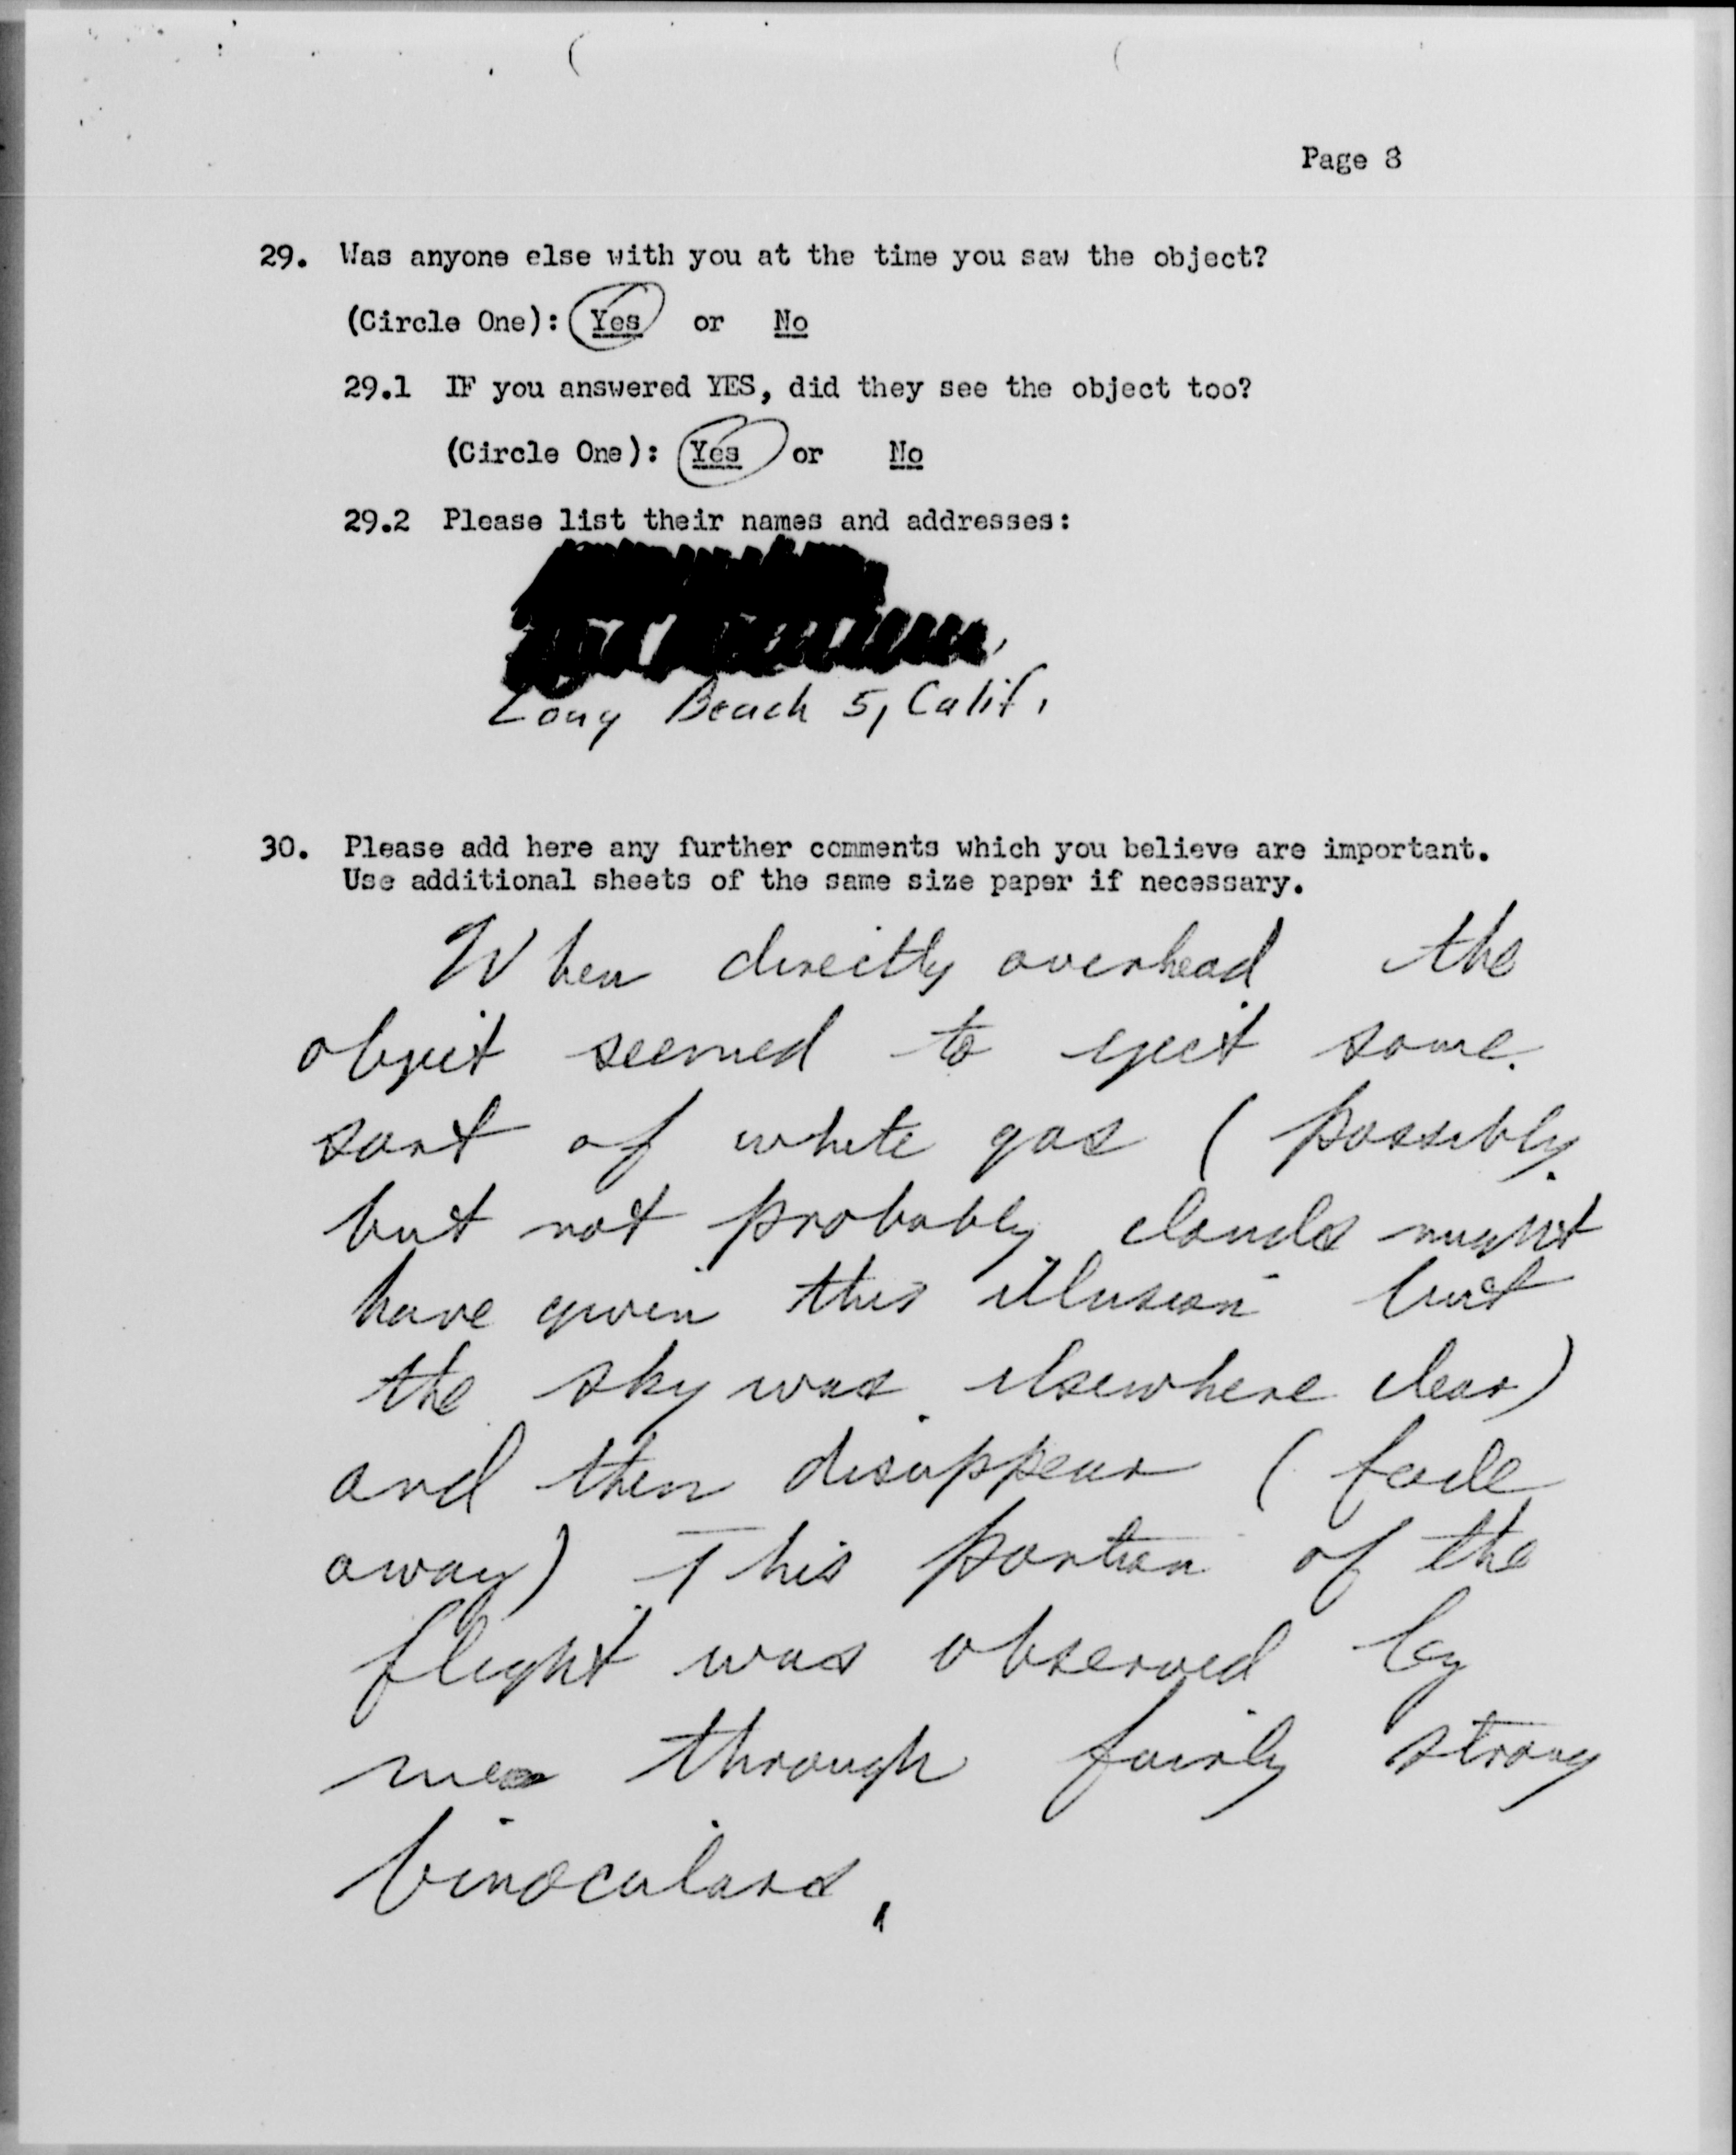 Page 8
29. Was anyone else with you at the time you saw the object?
(Circle One): Yes or No
29.1 IF you answered YES, did they see the object too?
(Circle One): Yes or No
29.2 Please list their names and addresses:
Long Beach 5, Calif.
30. Please add here any further comments which you believe are important.
Use additional sheets of the same size paper if necessary.
When directly overhead the
object seemed to eject some
sort of white gas (possibly
but not probably clouds might
have given this illusion but
the sky was elsewhere clear)
and then disappear (fade
away) This portion of the
flight was observed by
me through fairly strong
binoculars.